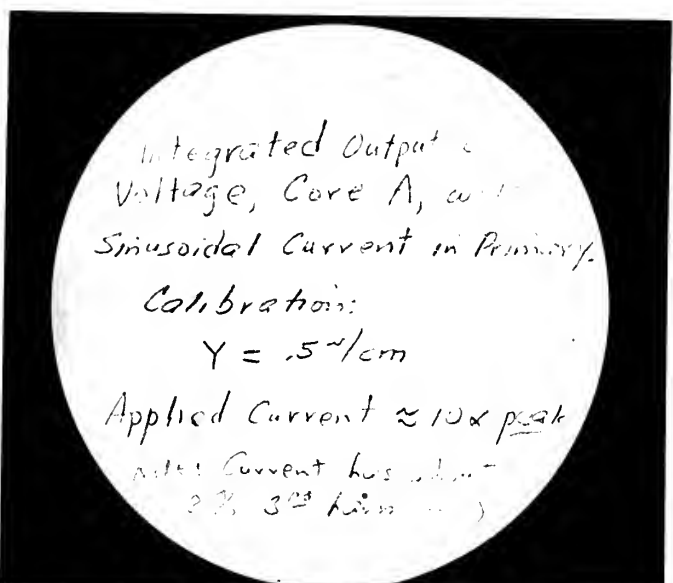 Integrated Output
Voltage, Core A,
Sinusoidal Current in Primary.
Calibration:
Y = .5 /cm
Applied Current ≈ 10 peak
Current has
3rd